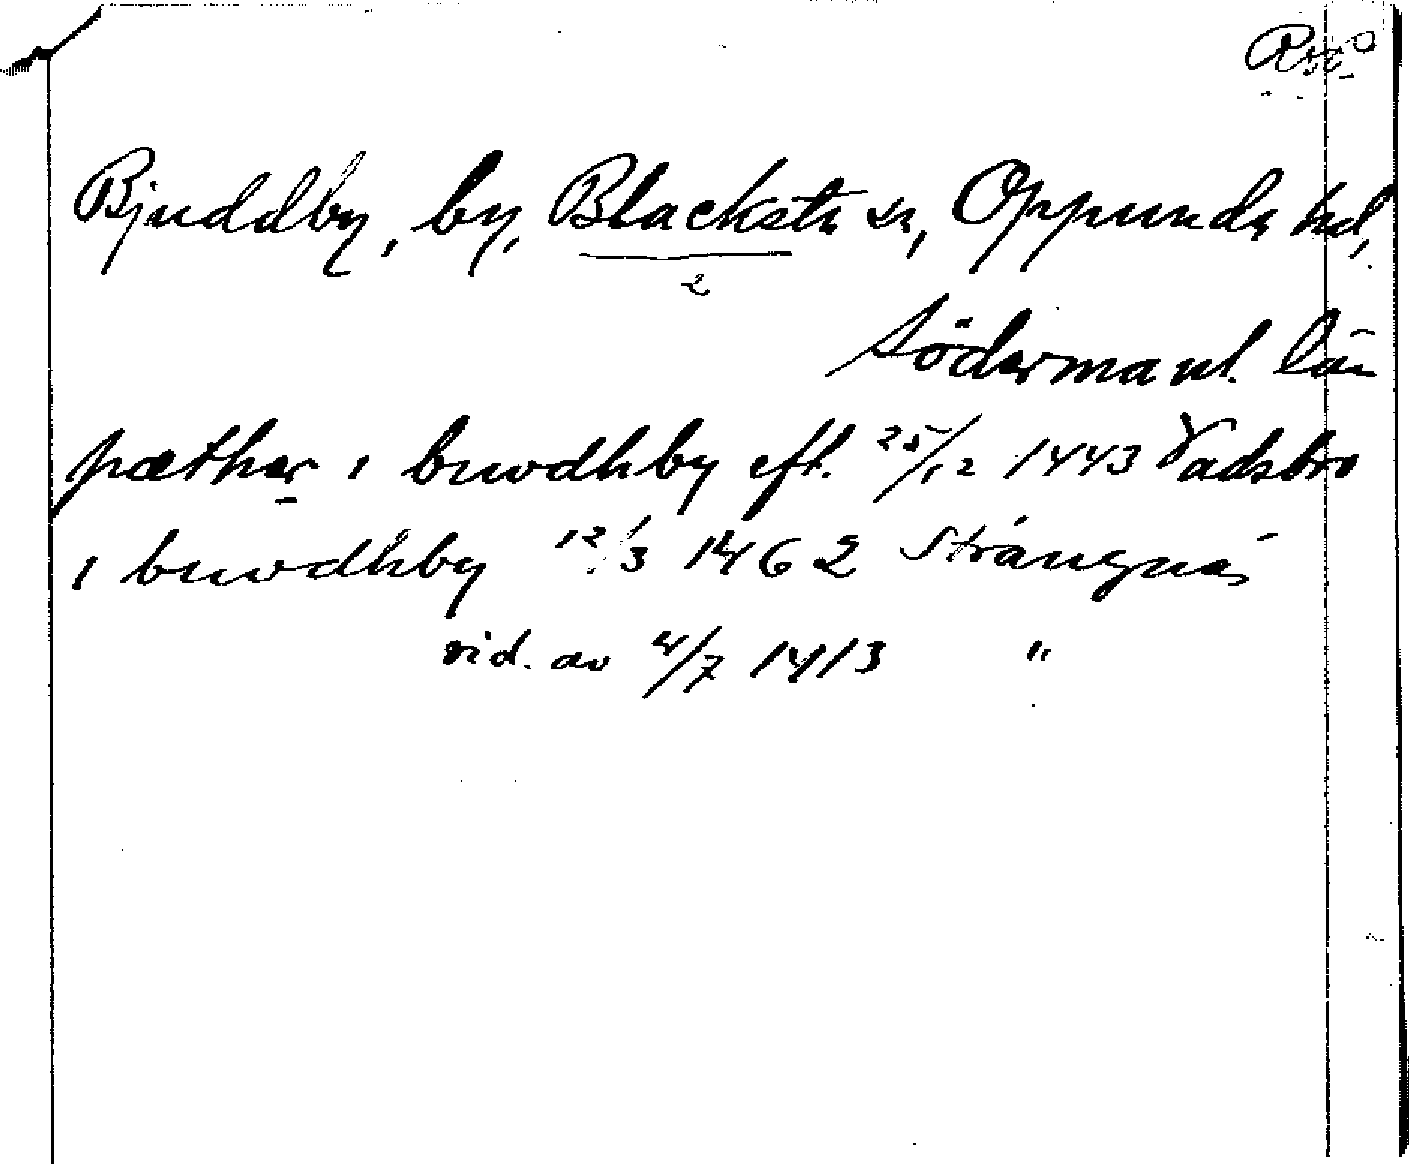 Bjuddby, by, Blacksta sn, Oppunda hd,
2
Södermanl. län
pæther i biwdhby eft. 25/12 1443 Vadsbro
i biwdhby 12/3 1462 Strängnäs
vid. av 4/7 1413 "